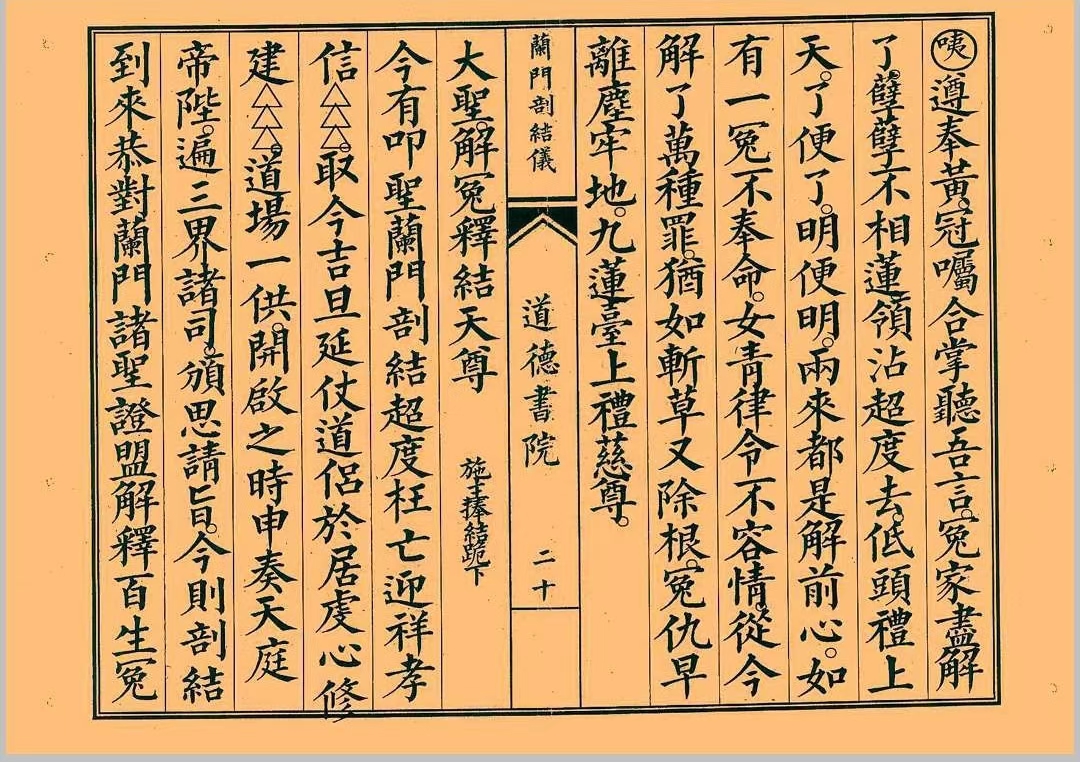 咦遵奉黃冠囑合掌聽吾言。冤家盡解
了。孽孽不相蓮。領沾超度去。低頭禮上
天。了便了。明便明。兩來都是解前心。如
有一冤不奉命。女青律令不容情。從今
解了萬種罪。猶如斬草又除根。冤仇早
離塵牢地。九蓮臺上禮慈尊。
蘭門剖結儀
道德書院
二十
大聖。解冤釋結天尊
施主捧結跪下
今有叩聖蘭門剖結超度枉亡迎祥孝
信△△△。取今吉旦延仗道侶於居處心修
建△△△。道場一供。開啟之時申奏天庭
帝陛。遍三界諸司。頒恩請旨。今則剖結
到來恭對蘭門諸聖證盟解釋百生冤